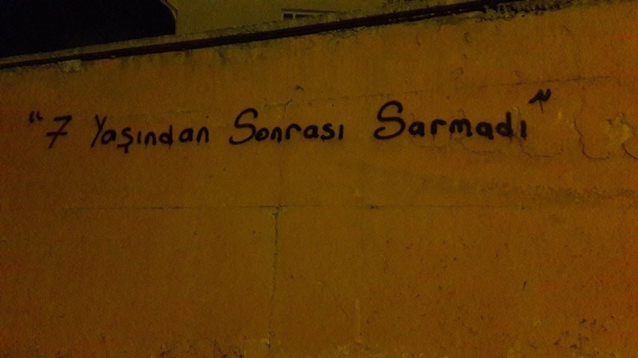 "7 Yaşından Sonrası Sarmadı"